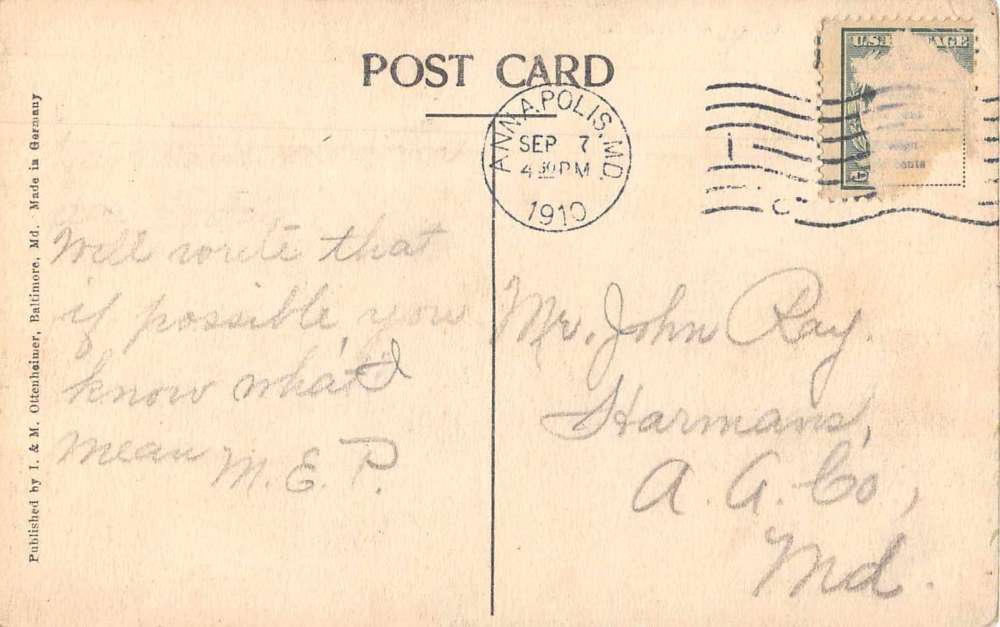 POST CARD
ANNAPOLIS, MD.
SEP 7
4 30 PM
1910
U.S. POSTAGE
Will write that
if possible, you
know what I
mean M. E. P.
Mr. John Ray.
Harmans,
A. A. Co,
Md.
Published by I. & M. Ottenheimer, Baltimore, Md. Made in Germany